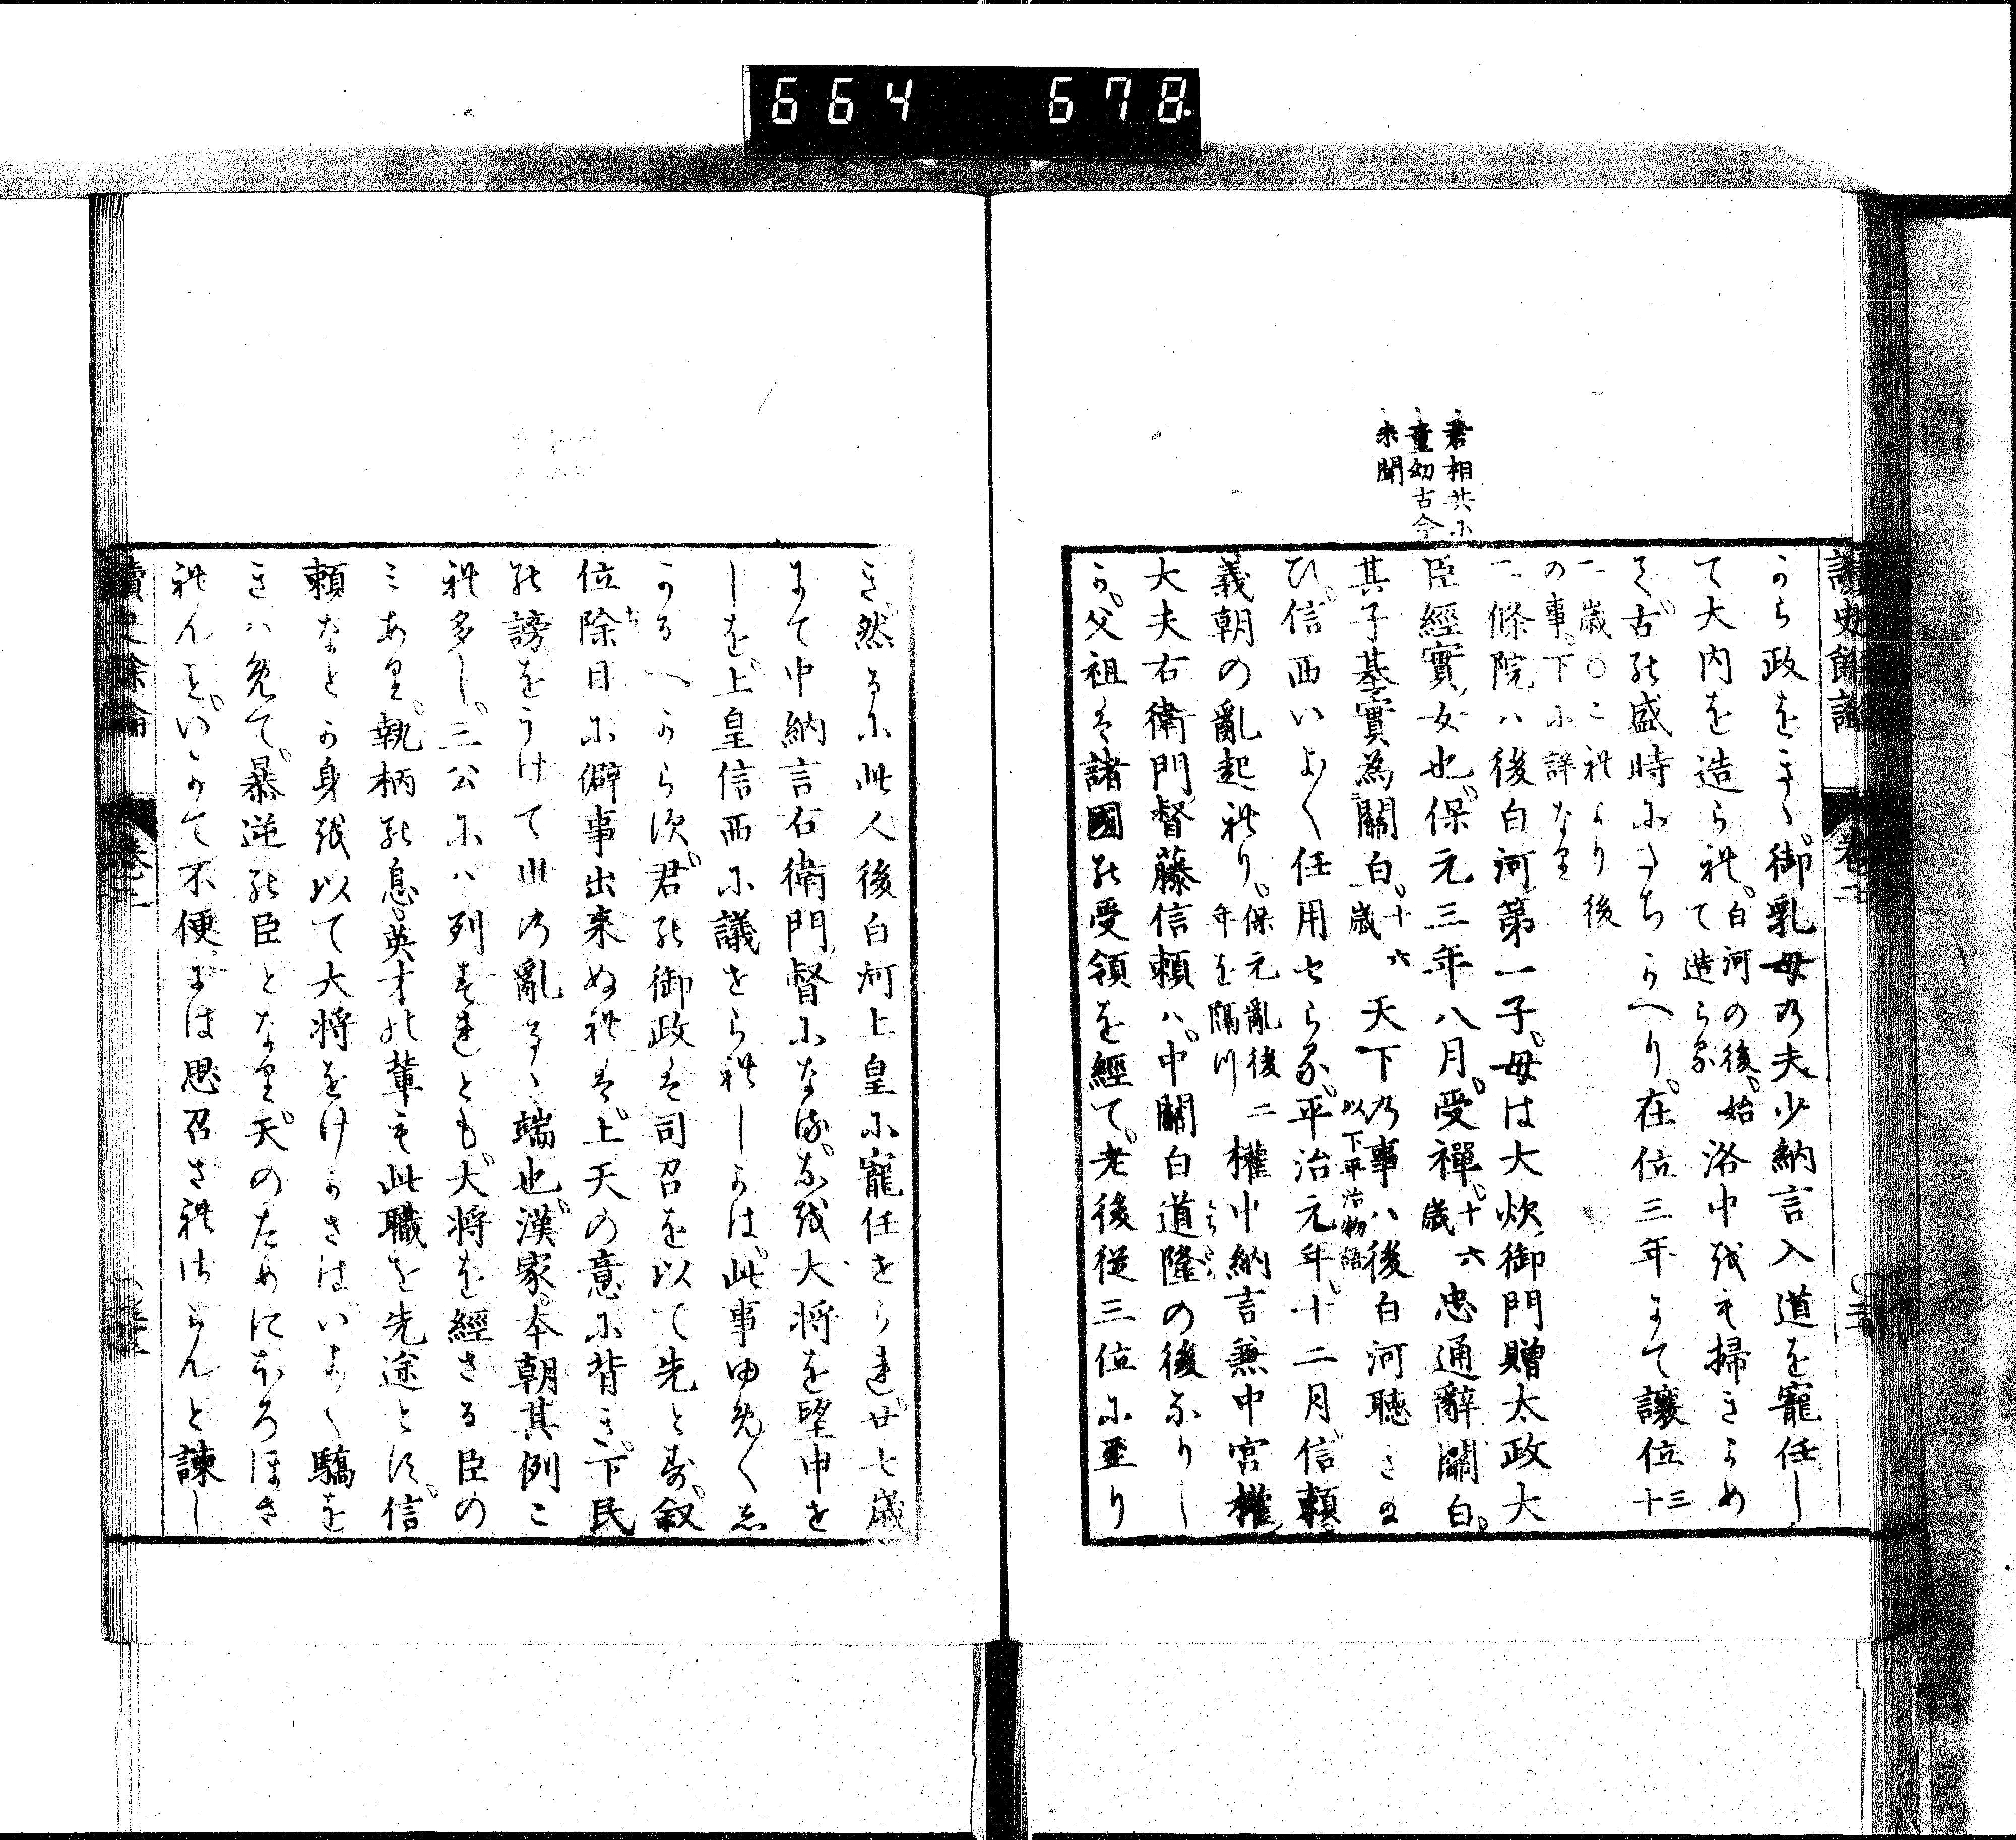 664 678
讀史餘論 卷二
君相共小
童幼古今
未聞
から政をきく。御乳母乃夫少納言入道を寵任し
て大内を造ら礼。白河の後。始て造らる 洛中越も掃きよめ
て。古能盛時尓たちかへり。在位三年尓て讓位三十
一歳〇こ礼より後
の事。下尓詳なり
二條院ハ後白河第一子。母は大炊御門贈太政大
臣經實女也。保元三年八月。受禪。十六歳 忠通辭關白。
其子基實為關白。十六歳 天下乃事ハ後白河聴さま 以下平治物語
ひ。信西いよ〱任用せらる。平治元年。十二月。信頼。
義朝の亂起礼り。保元亂後二年を隔つ 權中納言兼中宮權
大夫右衛門督藤信頼ハ。中關白道隆の後なりし
か。父祖は諸國能受領を經て。老後從三位尓至り
き。然る尓此人後白河上皇尓寵任せられ。廿七歳
尓て中納言右衛門督尓なる。な越大将を望申せ
しを。上皇信西尓議せら礼しかは。此事ゆめ〱あ
るへからす。君能御政は司召を以て先と寿。叙
位除目尓僻事出来ぬ礼は。上天の意尓背き。下民
能謗をうけて世乃亂るゝ端也。漢家。本朝其例こ
礼多し。三公尓ハ列寿連とも。大将を經さる臣の
ミあり。執柄能息。英才能輩も此職を先途とす。信
頼なとか身越以て大将をけかさは。いよ〱驕を
きハ免て。暴逆能臣となり。天のために本ろほさ
礼んを。いかて不便。尓は思召さ礼さらんと諫し
讀史餘論 卷二